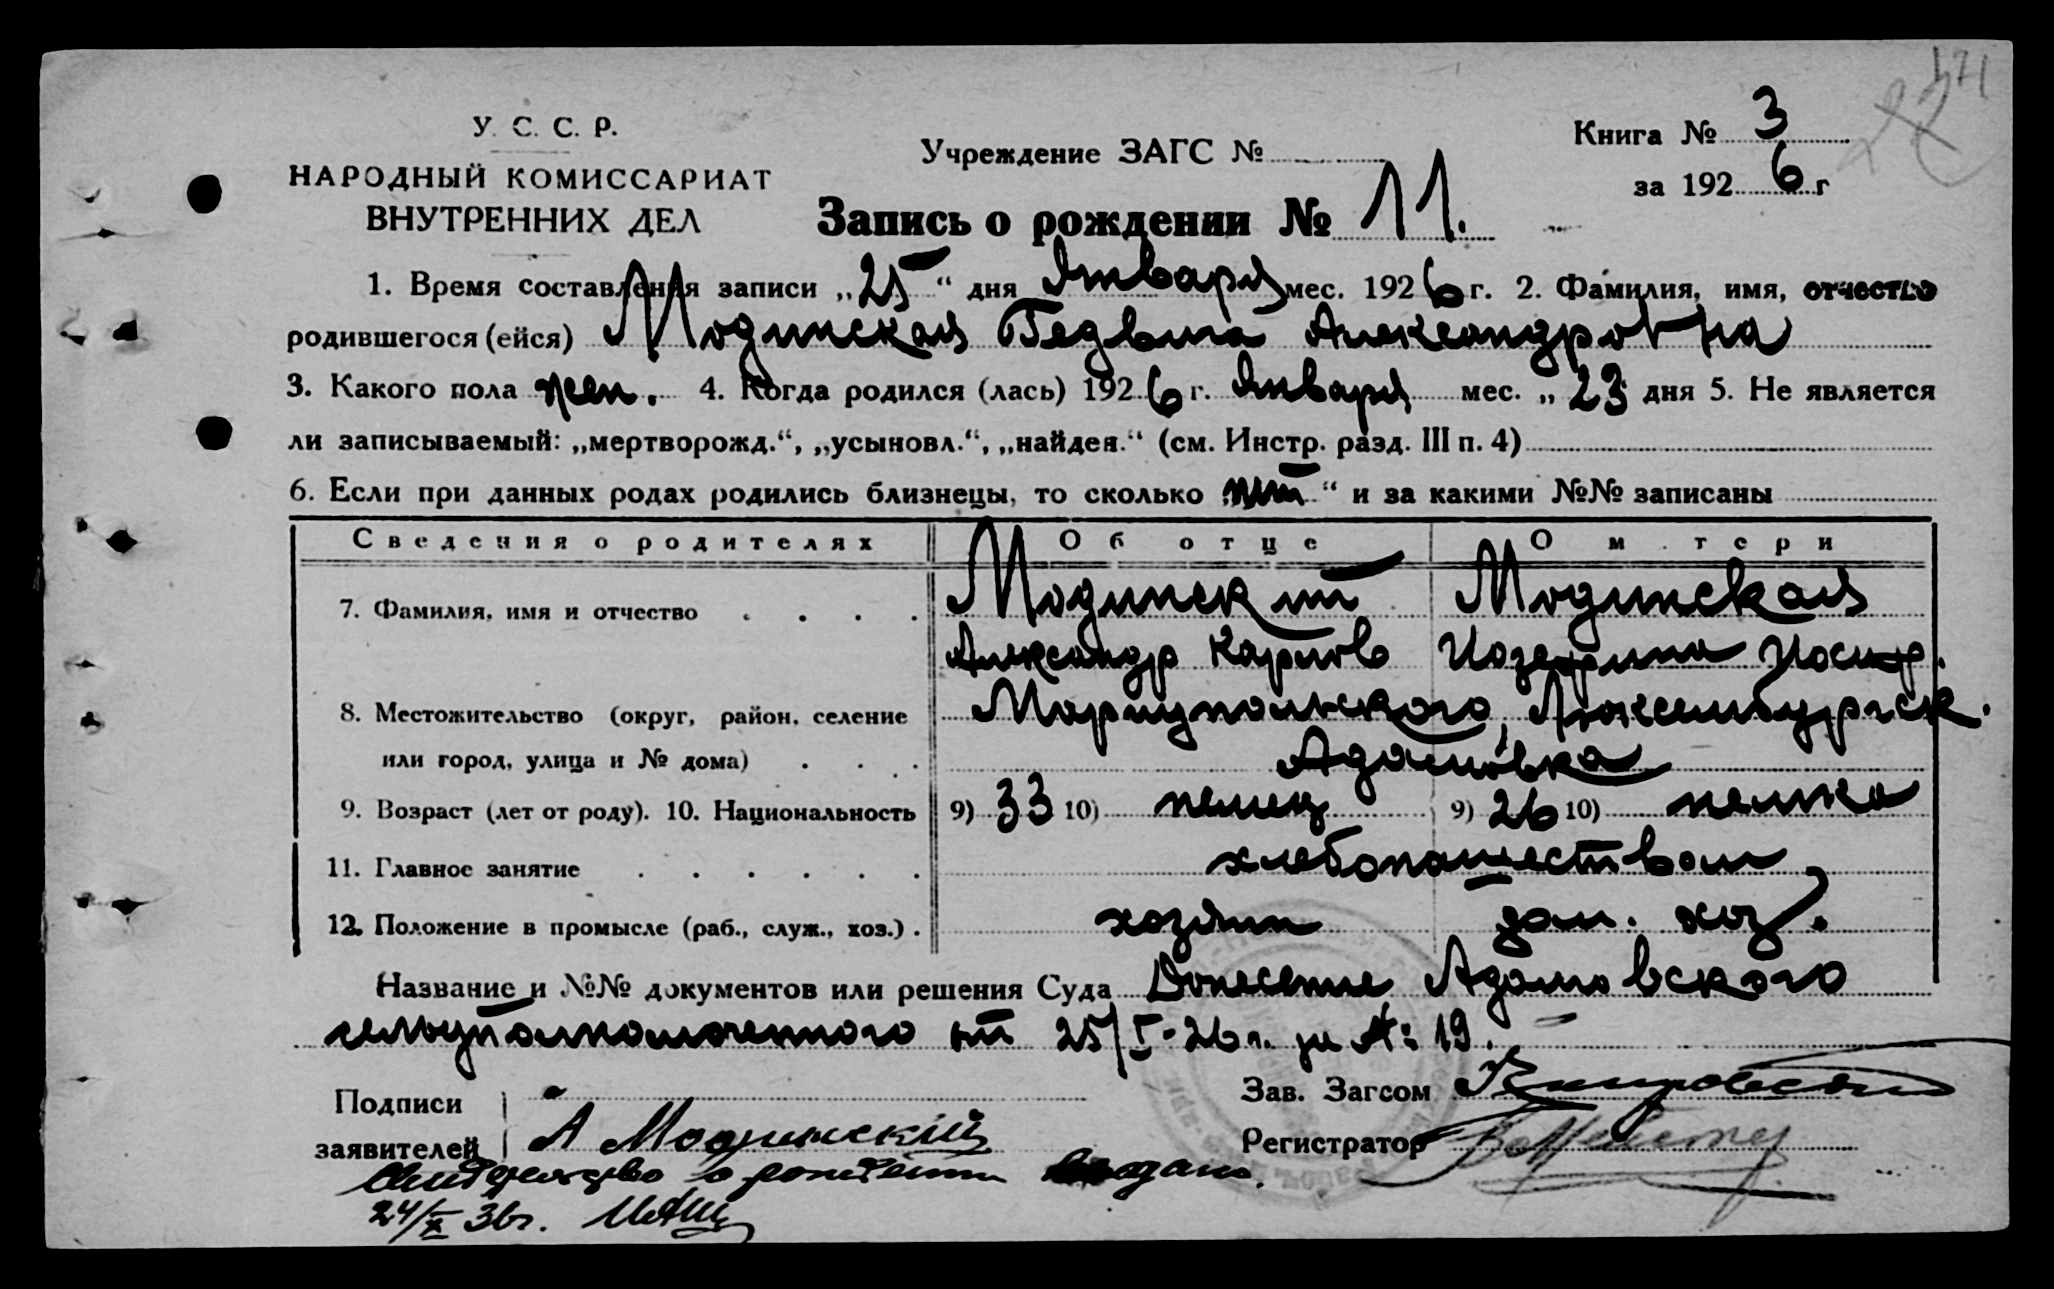 471
У. С. С. Р.
НАРОДНЫЙ КОМИССАРИАТ
ВНУТРЕННИХ ДЕЛ
Учреждение ЗАГС №
Книга № 3
за 1926 г
Запись о рождении № 11.
1. Время составления записи „25“ дня Января мес. 1926 г. 2. Фамилия, имя, отчество
родившегося (ейся) Модинская Гедвига Александровна
3. Какого пола жен. 4. Когда родился (лась) 1926 г. Января мес. „23 дня 5. Не является
ли записываемый: „мертворожд.“, „усыновл.“, „найден.“ (см. Инстр. разд. III п. 4)
6. Если при данных родах родились близнецы, то сколько нет “ и за какими №№ записаны
Сведения о родителях Об отце О м.тери
7. Фамилия, имя и отчество . . . . Модинский Модинская
Александр Карлов Иозефина Иосиф.
8. Местожительство (округ, район, селение Мариупольского, Люксембургск.
или город, улица и № дома) . . . Адамовка
9. Возраст (лет от роду). 10. Национальность 9) 33 10) немец 9) 26 10) немка
11. Главное занятие . . . . . . хлебопашеством
12. Положение в промысле (раб., служ., хоз.) . хозяин дом. хоз.
Название и №№ документов или решения Суда Донесение Адамовского
сельуполномоченного от 25/I-26 г. за №: 19.
Зав. Загсом
Подписи
заявителей А Модинский
Регистратор
Свидетельство о рождении выдано.
24/X 36г.